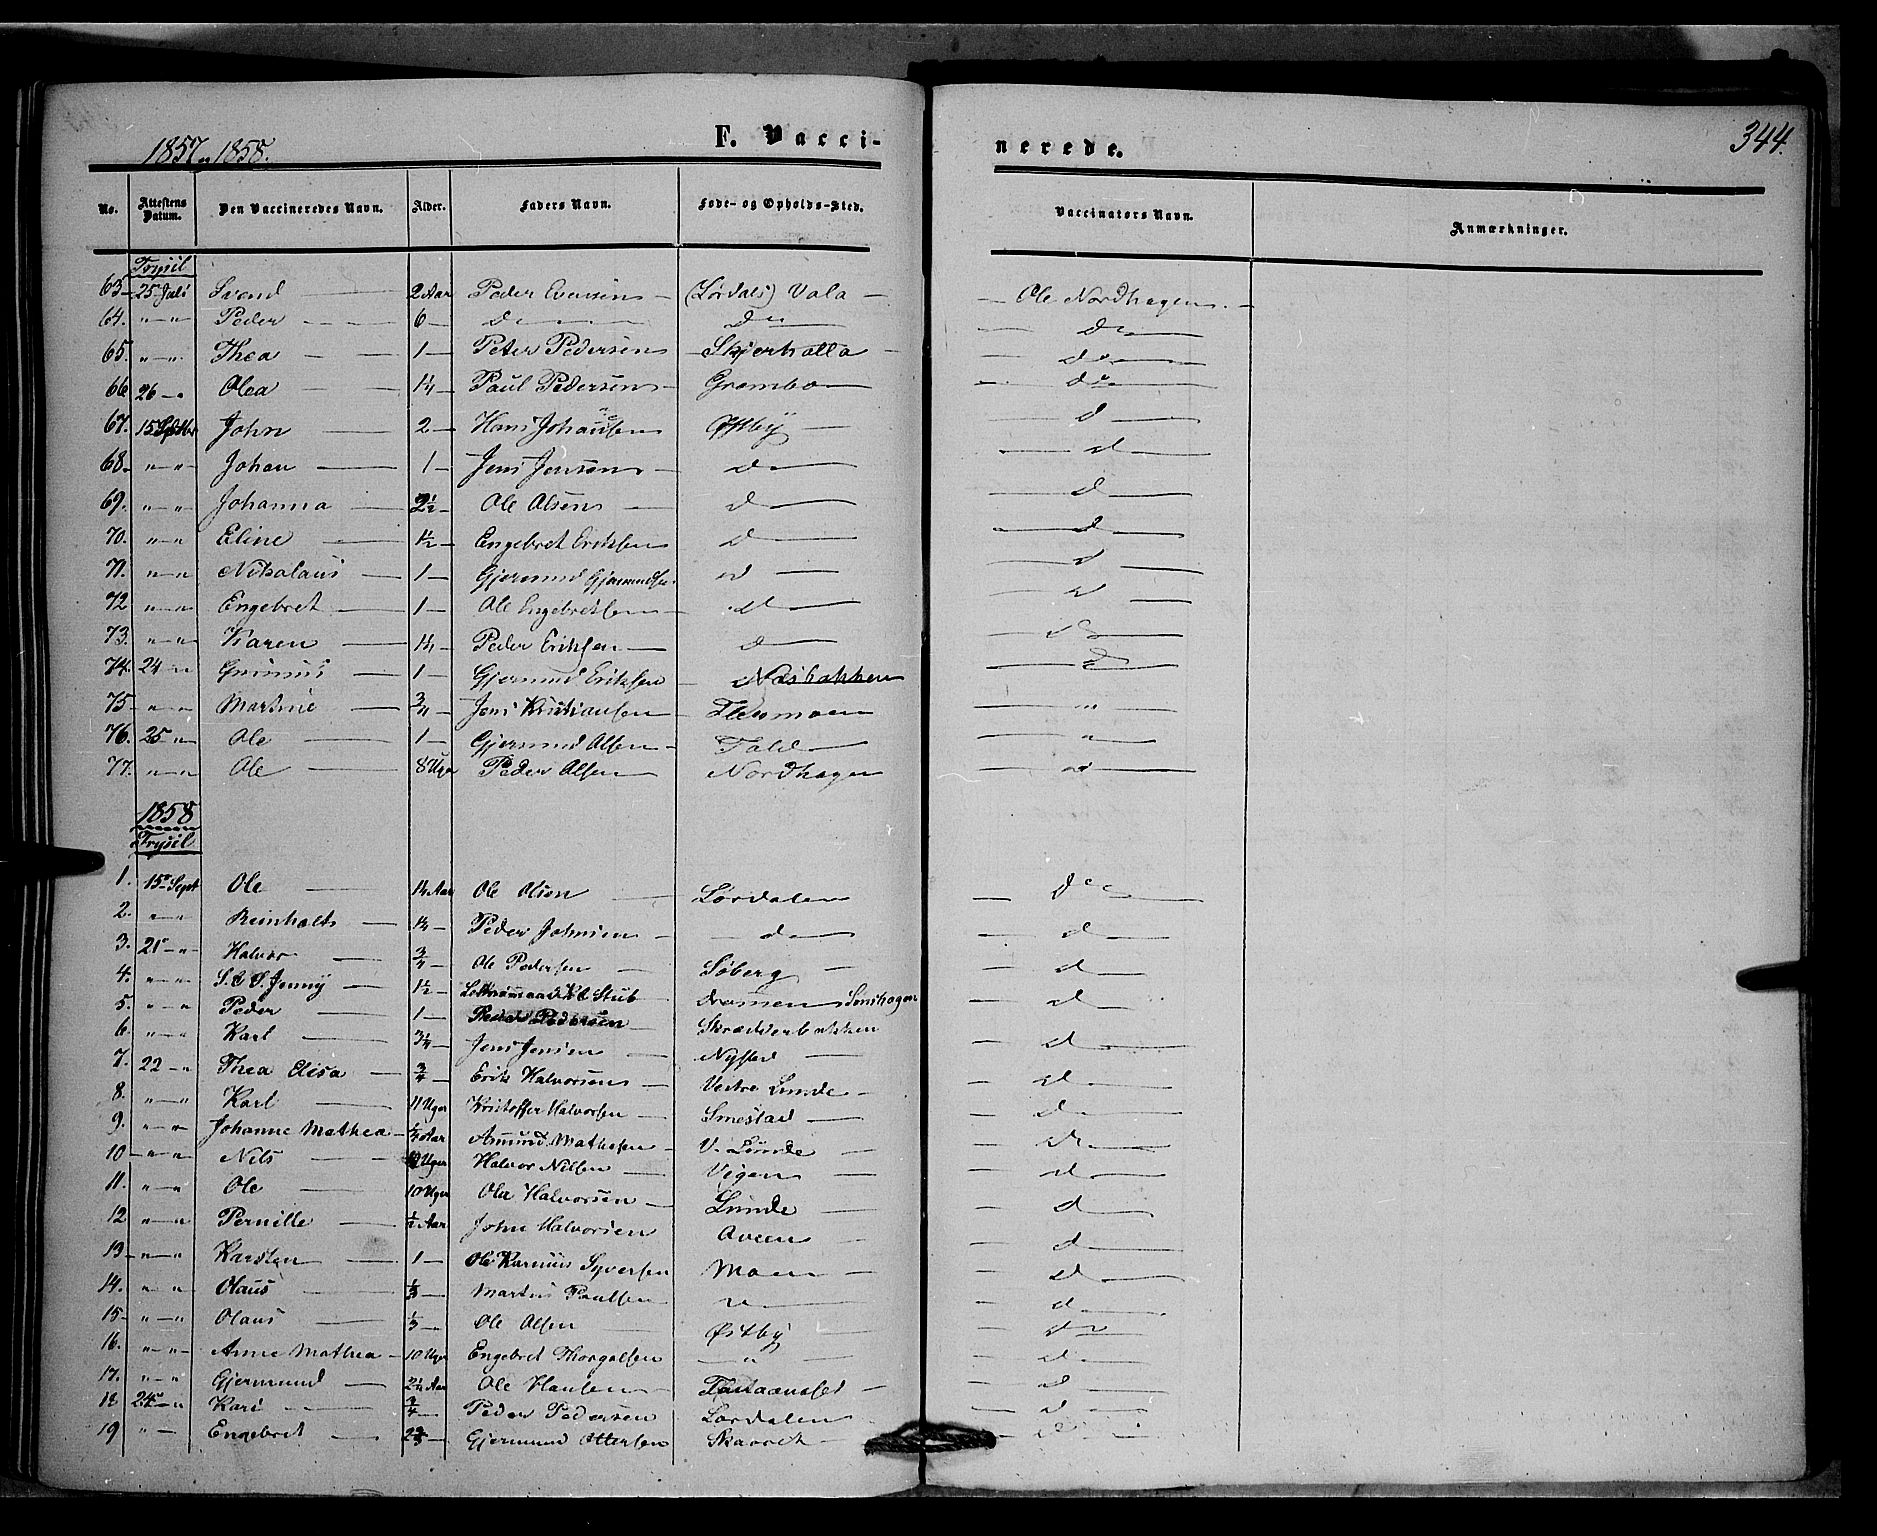 1857 og 1858. F. Vacci- nerede. 344.
No. Attestens Datum. Den Vaccineredes Navn. Alder. Faders Navn. Føde- og Opholds-Sted. Vaccinators Navn. Anmærkninger.
Trysil
63 - 25 Juli Svend — 2 Aar Peder Evensen — (Lørdals) Vola — Ole Nordhagen —
64. " — " Peder — 6 — do — do — do —
65. " — " Thea — 1 — Peter Pedersen — Skjerholla — do —
66 26 — " Olea — 1¼ — Paul Pedersen — Grambo — do —
67. 15 Septbr John — 2 — Hans Johansen Østby — d —
68. " — " Johan — 1 — Jens Jensen — d — d —
69. " — " Johanna — 2½ — Ole Olsen — d — d —
70. " — " Eline — 1½ — Engebret Eriksen d — d —
71. " — " Nikolaus — 1 — Gjermund Gjermundsen d — d —
72 " — " Engebret — 1 — Ole Engebretsen — d — d —
73. " — " Karen — 1¼ — Peder Eriksen — d — d —
74. 24 — " — 1 — Gjermund Eriksen — Næsbakken — d —
75 — " — " Martine — ¾ — Jens Kristiansen — — " —
76. 25 — " Ole — 1 — Gjermund Olsen — — " —
77. " — " Ole — 8 Uger Peder Olsen — Nordhagen — d —
1858
Trysil
1. 15 Sept Ole — 1¼ Aar Ole Olsen — Lørdalen do
2. " — " Reinholdt — 1¼ — Peder Johnsen — d — d —
3. 21 — " Halvor — ¾ — Ole Pedersen — Søberg — d —
4. " — " Jenny — 1½ — Stub — d —
5 " — " Peder — 1 — Peder Pedersen — Skrædderbakken
6. " — " Karl — ¾ — Jens Jensen — Nysted — d —
7. 22 — " Thea Elisa — ¾ — Erik Halvorsen — Vestre Lunde — d —
8. " — " Karl — 11 Uger Kristoffer Halvorsen — Smestad — d —
9. " — " Johanne Mathea — Aar Amund Mathesen — V. Lunde — d —
10 — " — " Nils — Uger Halvor Nilsen — Vigen — d —
11. " — " Ole — 10 Uger Ole Halvorsen — Lunde — d —
12 " — " Pernille — ½ Aar John Halvorsen Aveen — d —
13 — " — " Karsten — 1 — Ole Syversen Moen — d —
14. " — " Olaus — ⅓ — Martin Paulsen " — d —
15 — " — " Olaus — ⅓ — Ole Olsen — Østby — d —
16. " — " Anne Mathea — 10 Uger Engebret Thorgalsen — " — d —
17. " — " Gjermund — 2¼ Aar Ole Hansen — — d —
18 24 — " Kari — ¾ — Peder Pedersen Lørdalen — d —
19 " — Engebret — 2⅔ — Gjermund Ottersen — — d —